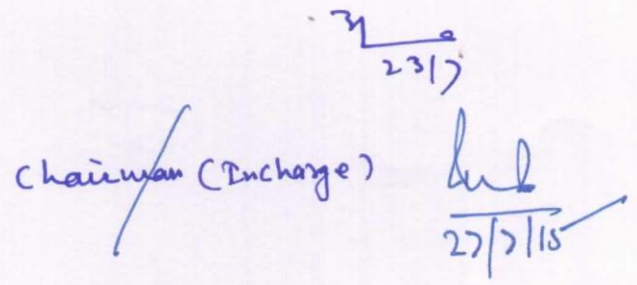 23/7
Chairman (Incharge)
27/7/15